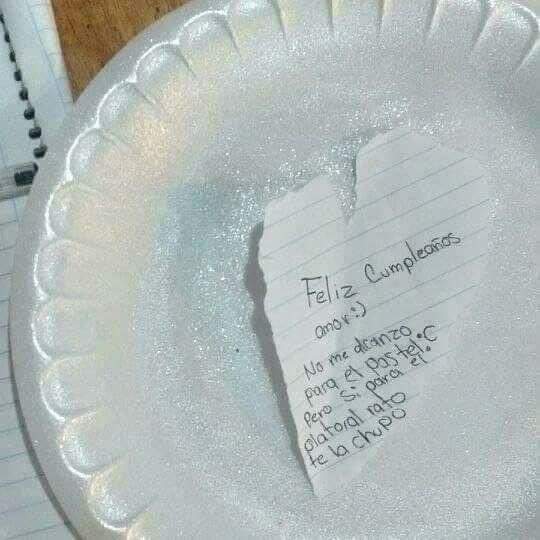 Feliz Cumpleaños
amor:)
No me alcanzo
para el pastel:C
Pero si para el
platoral rato
te la chupo